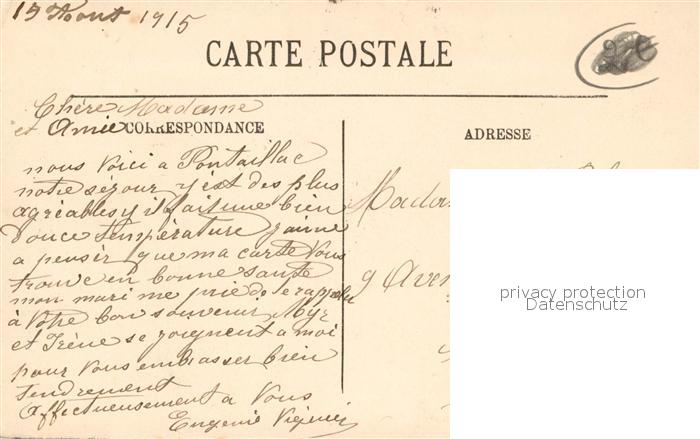 15 Aout 1915
CARTE POSTALE
Chère Madame
et Amie
CORRESPONDANCE
nous voici a Pontaillac
notre séjour y est des plus
agréables y il fait une bien
douce température j'aime
a penser que ma carte vous
trouve en bonne santé
mon mari me prie de le rappeler
à votre bon souvenir
et Irène se joignent a moi
pour vous embrasser bien
tendrement
affectueusement a vous
Eugénie
ADRESSE
Mada
9 Aven
privacy protection
Datenschutz